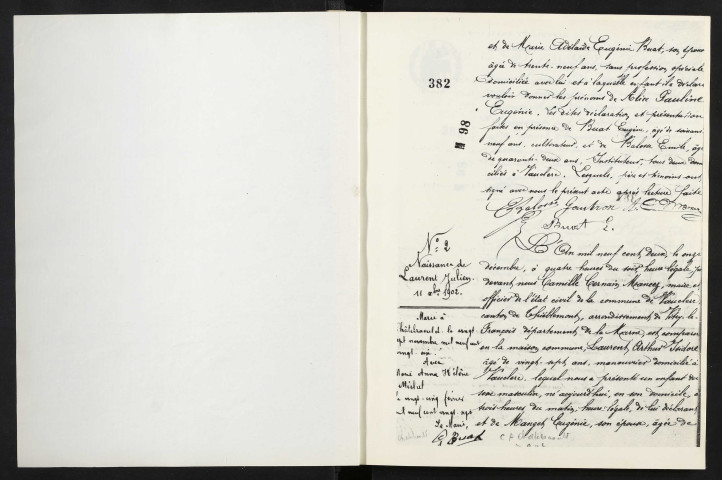 382
M 98
et de Marie Adélaïde Eugénie Buat, son épouse
âgée de trente-neuf ans, sans profession,
domiciliée avec lui et à laquelle enfant il a déclaré
vouloir donner les prénoms de Alice Pauline
Eugénie. Les dites déclaration et présentation
faites en présence de Buat Eugène, âgé de soixante
neuf ans, cultivateur et de Balossa Emile, âgé
de quarante-deux ans, Instituteur, tous deux domi
ciliés à Vauclerc. Lesquels, père et témoins ont
signé avec nous le présent acte après lecture faite
E. Balossa Gautron
Buat E.
N° 2
Naissance de
Laurent Julien
11 Xbre 1902.
Marié à
le vingt
sept novembre mil neuf cent
vingt
avec
Anna Hélène
le vingt-cinq février
mil neuf cent vingt sept
Le Maire,
L'An mil neuf cent deux, le onze
décembre, à quatre heures du soir, heure légale, par
devant nous Camille Germain Mancez, maire et
officier de l'état civil de la commune de Vauclerc
canton de Thiéblemont, arrondissement de Vitry-le-
François département de la Marne, est comparu
en la maison commune, Laurent, Arthur Isidore
âgé de vingt-sept ans, manouvrier domicilié à
Vauclerc, lequel nous a présenté un enfant du
sexe masculin, né aujourd'hui, en son domicile, à
trois heures du matin, heure légale, de lui déclarant
et de Manget, Eugénie, son épouse, âgée de